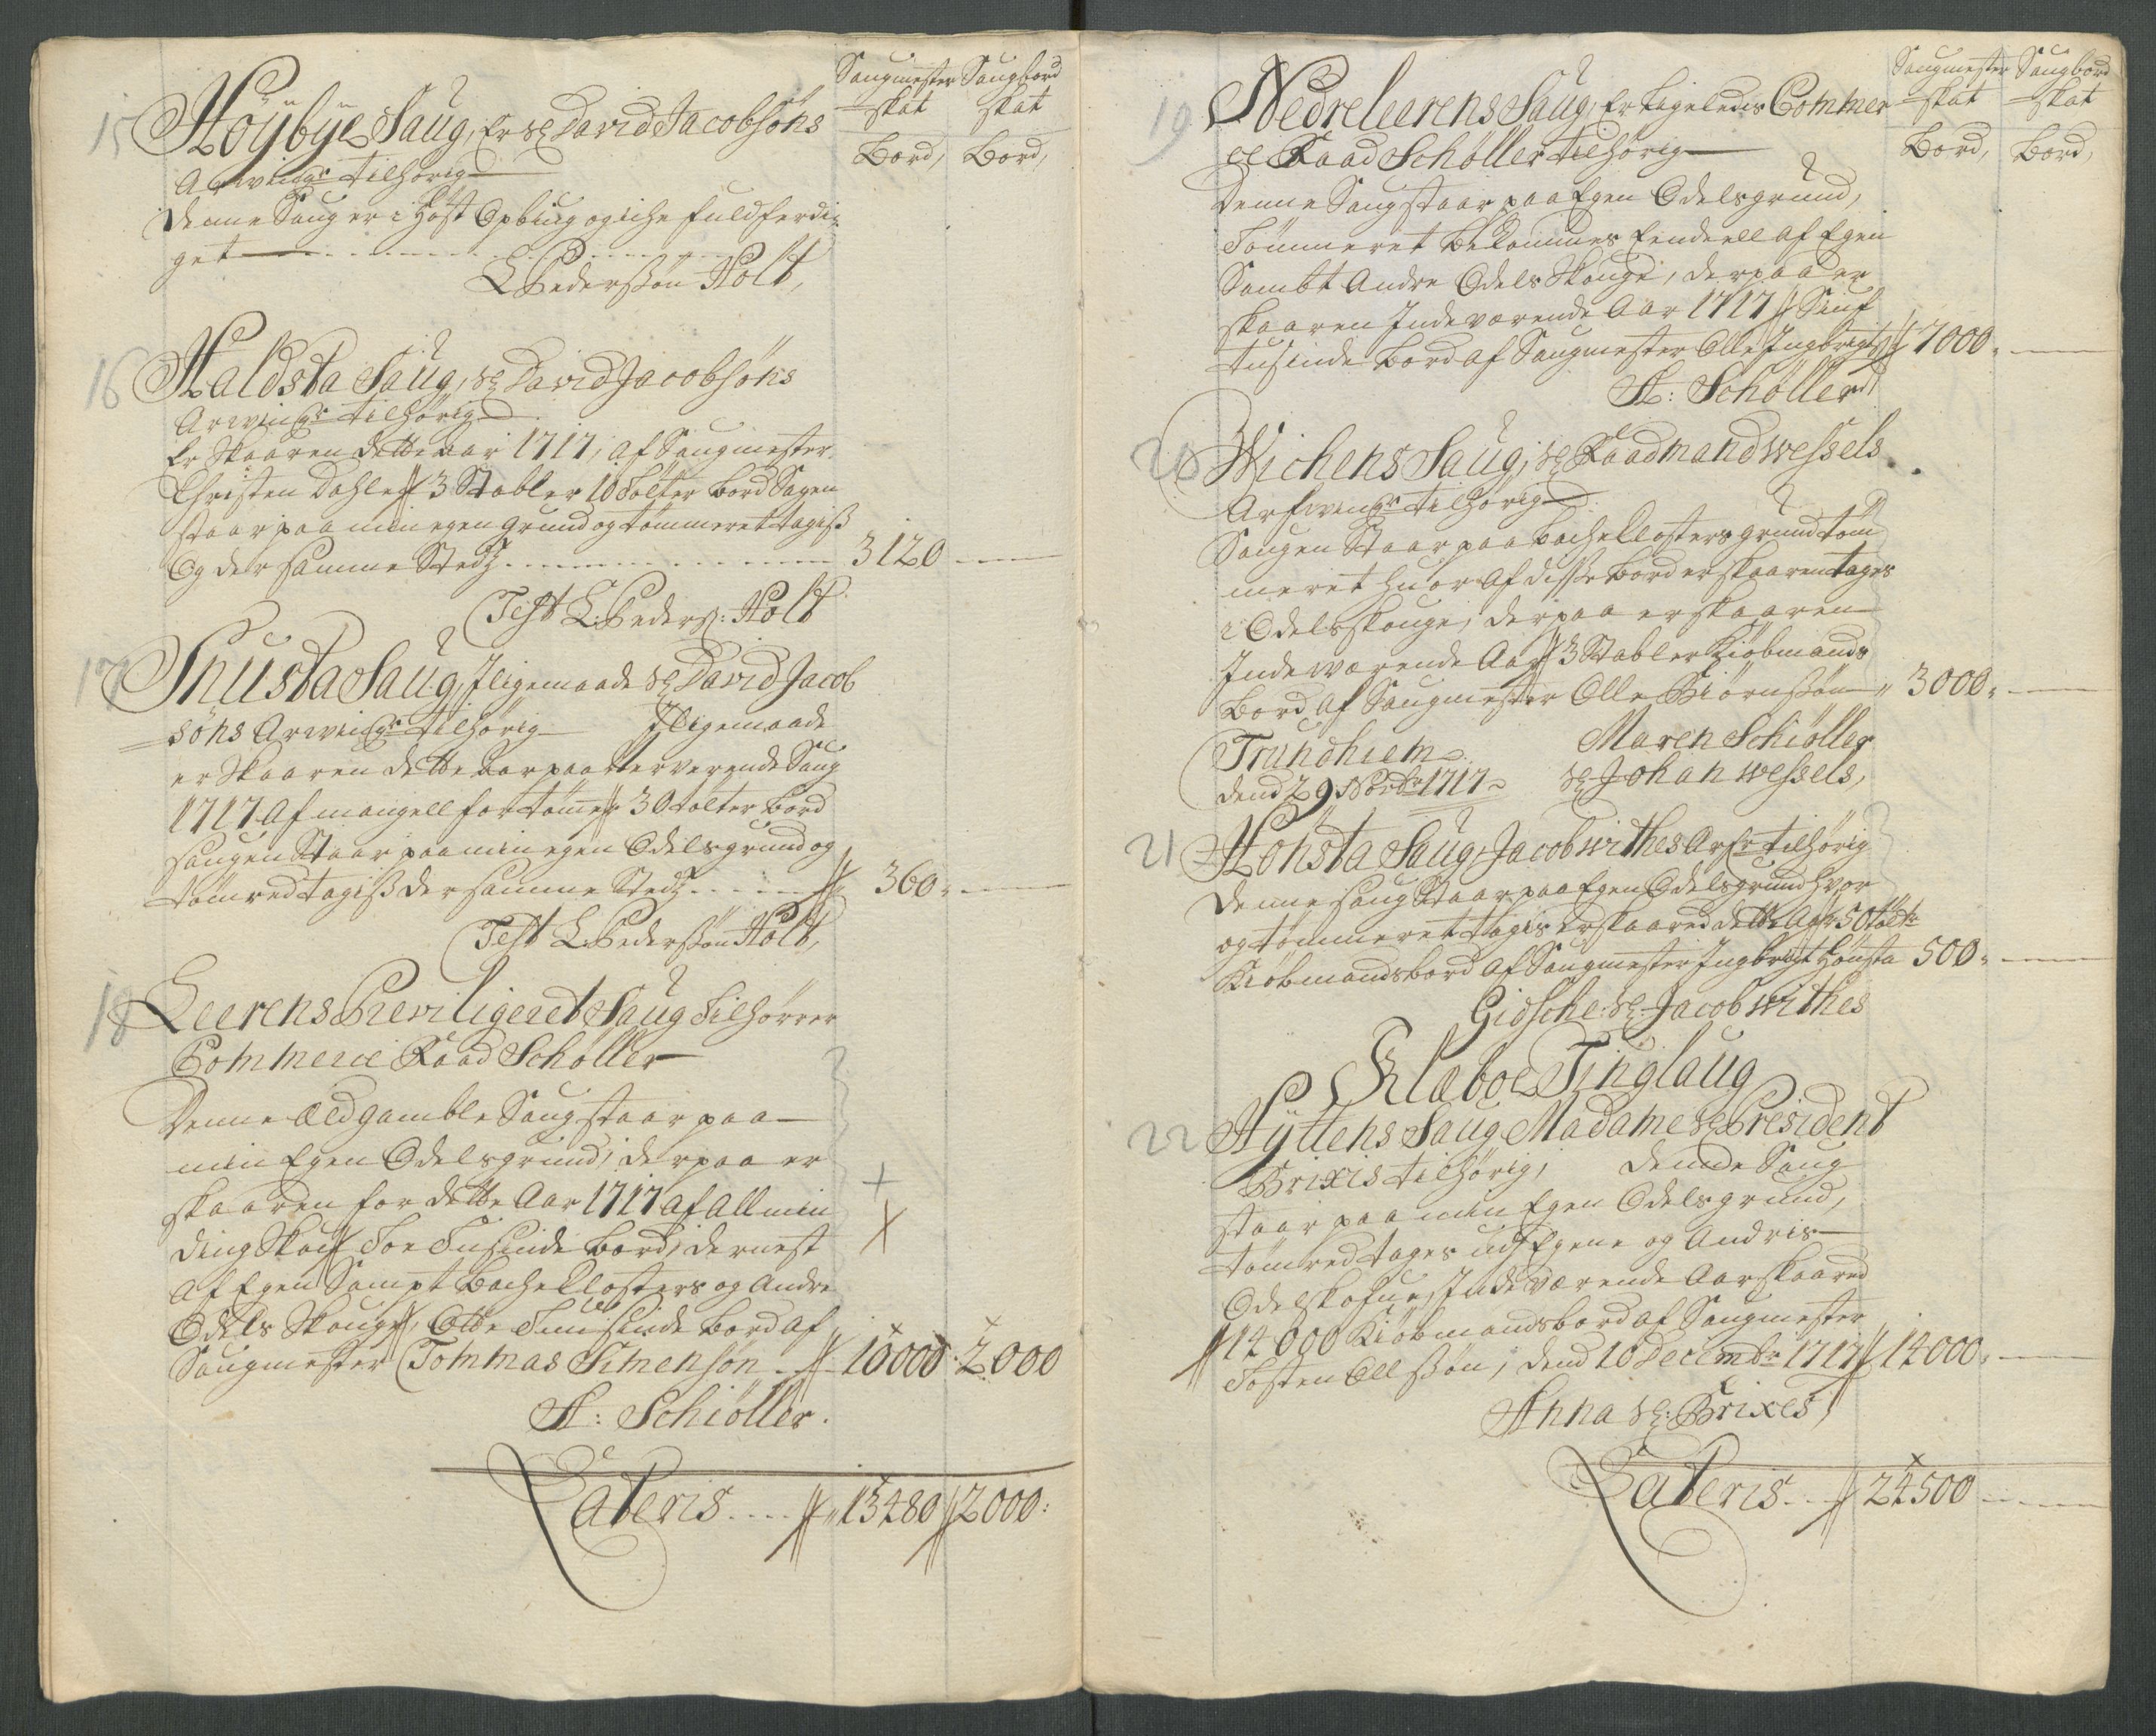 Saugmester Saugbord
skat skat
Bord, Bord,
15 Höÿbÿe Saug, Er Sl David Jacobsöns
Arvings tilhörig
Denne Saug er i Höst Opbiug og iche fuldferdi-
get
L Pederssön Holt,
16 Haldsta Saug, Sl David Jacobsöns
Arvings tilhörig
Er Skaaren dette aar 1717, af Saugmester
Christen Dahle 3 Stabler 10 Tölter bord Sagen
staar paa min egen grund og tömmeret tagiß
Og der samme Stedz 3120
Test L: Peders: Holt
17 Snusta Saug, Iligemaade Sl David Jacob
söns Arvings tilhörig Iligemaade
er Skaaren dette aar paa Nerverende Saug
1717 Af mangell for tömer 30 tölter bord
saugen Staar paa min egen Odelsgrund og
tömred tagiß der samme Stedz 360
Test L: Pederssön Holt,
18 Leerens Previligeret Saug Tilhörrer
Commerce Raad Schøller
Denne Eldgamble Saug staar paa
min Egen Odelsgrund, der paa er
skaaren for dette Aar 1717 af Allmin
ding Skou Toe Tusinde bord, dernest
Af Egen Sampt Bache Closters og Andre
Odels Skouge, Otte Tuusinde bord af
Saugmester Tommas Simensön 10000 2000
A: Schiøller.
Lateris 13480 2000:
Saugmester Saugbord
skat skat
Bord, Bord,
19 Nedreleerens Saug, Er ligeledis Commer
ce Raad Schøller tilhörig
Denne Saug staar paa Egen Odelsgrund,
Tömmeret bekommes Eendeell af Egen
Sambt Andre Odels Skouge, der paa er
skaaren Indeværende Aar 1717 Siuf
tusinde bord af Saugmester Olle Ingbrigts 7000
A: Schøller
20 Wichens Saug, Sl Raadmand Wessels
Arfvings tilhörig
Saugen Staar paa Bache Closters grund töm
meret huor Af disse bord er skaaren tages
i Odelsskouge, der paa er skaaren
Indeværende Aar 3 Stabler Kiöbmands
Bord af Saugmester Olle Biörnssön 3000
Trundhiem Maren Schiøller
dend 29 Novbr 1717 Sl Johan Wessels,
21 Hönsta Saug, Jacob Withes Arfr tilhörig
Denne saug Staar paa Egen Odelsgrund hvor
og tömmeret tages er skaared dette Aar 50 tölter
Kiöbmandsbord af Saugmester Ingbrigt Hönsta 500
Gidsche Sl: Jacob Withes
Klæboe Tinglaug
22 Hÿttens Saug Madame Sl President
Brixis tilhörig, denne Saug
staar paa min Egen Odelsgrund,
tömred tages udj Egene og Andris
Odelskofue, Indeværende Aar skaared
14000 Kiöbmandsbord af Saugmester
Tosten Ollssön, dend 10 Decembr 1717 14000
Anna Sl: Brixes
Lateris 24500